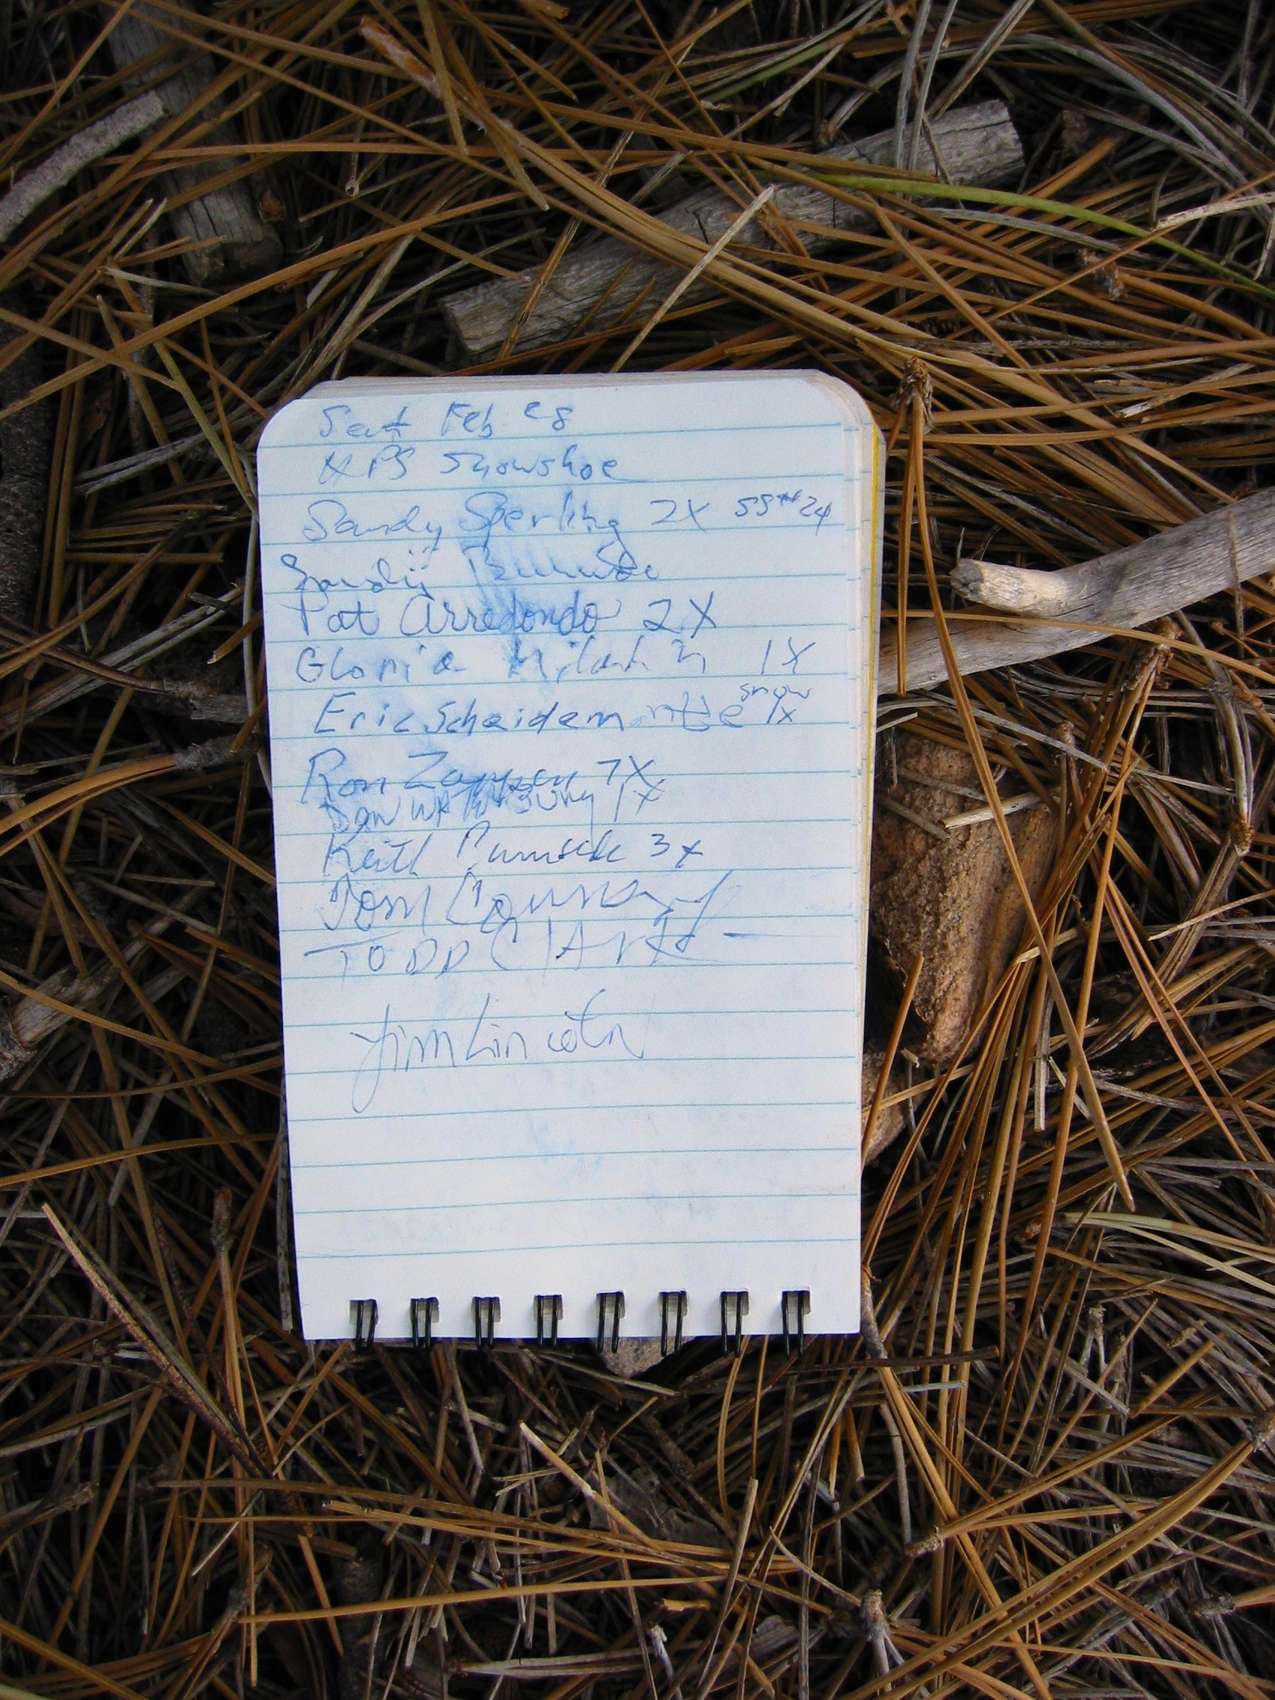 Sat Feb 28
HPS Snowshoe
Sandy Sperling 2X SS#24
Sandy
Pat Arredondo 2X
Gloria 1X
Eric Scheidemantle snow 1x
Ron Zappen 7X
Dan 1X
Keith 3x
Tom
TODD ClArk
Jim Lincoln